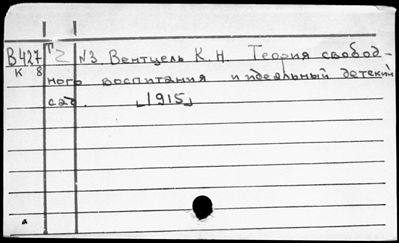 В427 Г2 №3. Вентцель К.Н. Теория свобод-
К 8 ного воспитания и идеальный детский
сад. [1915]